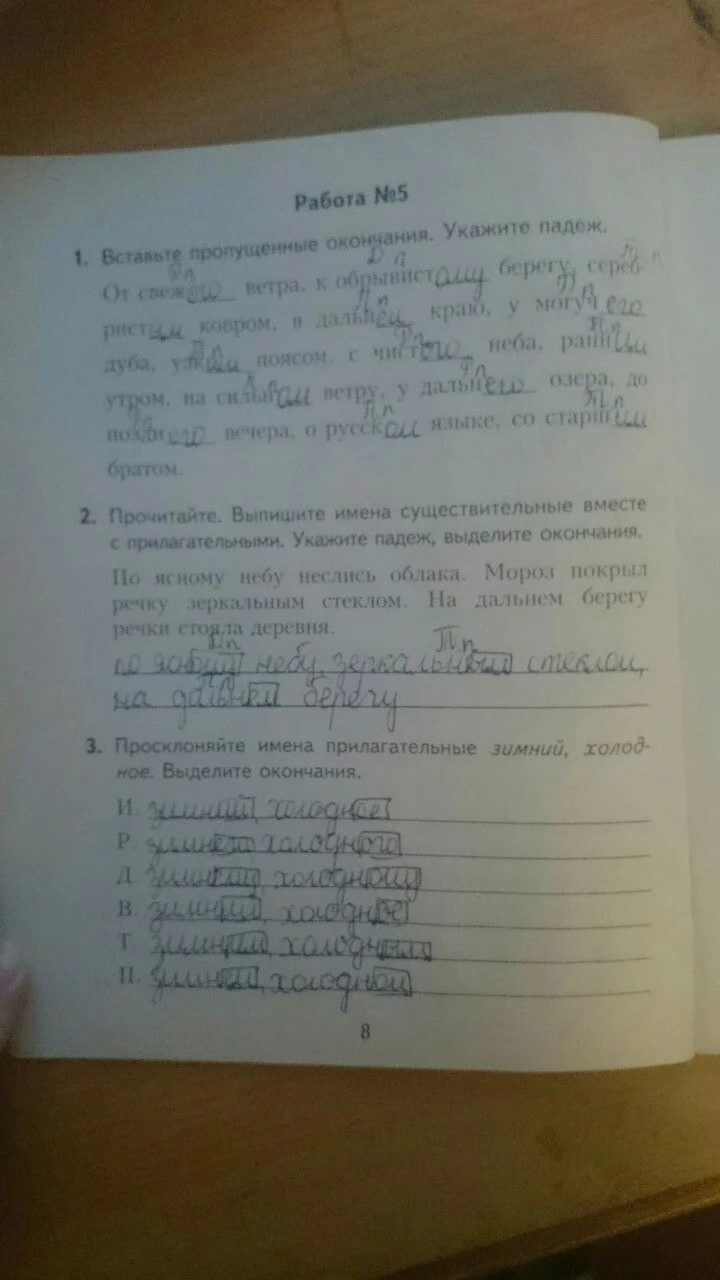 Работа №5
1. Вставьте пропущенные окончания. Укажите падеж.
Рп Дп Тп
От свежего ветра, к обрывистому берегу, сереб-
Пп Рп
ристым ковром, в дальнем краю, у могучего
Тп Рп Тп
дуба, узким поясом, с чистого неба, ранним
Пп Рп
утром, на сильном ветру, у дальнего озера, до
Рп Пп Тп
позднего вечера, о русском языке, со старшим
братом.
2. Прочитайте. Выпишите имена существительные вместе
с прилагательными. Укажите падеж, выделите окончания.
По ясному небу неслись облака. Мороз покрыл
речку зеркальным стеклом. На дальнем берегу
речки стояла деревня.
Дп Тп
по небу, зеркальным стеклом,
на дальнем берегу
3. Просклоняйте имена прилагательные зимний, холод-
ное. Выделите окончания.
И. зимний, холодное
Р. зимнего холодного
Д. зимнему, холодному
В. зимний, холодное
Т. зимним, холодным
П. зимнем, холодном
8